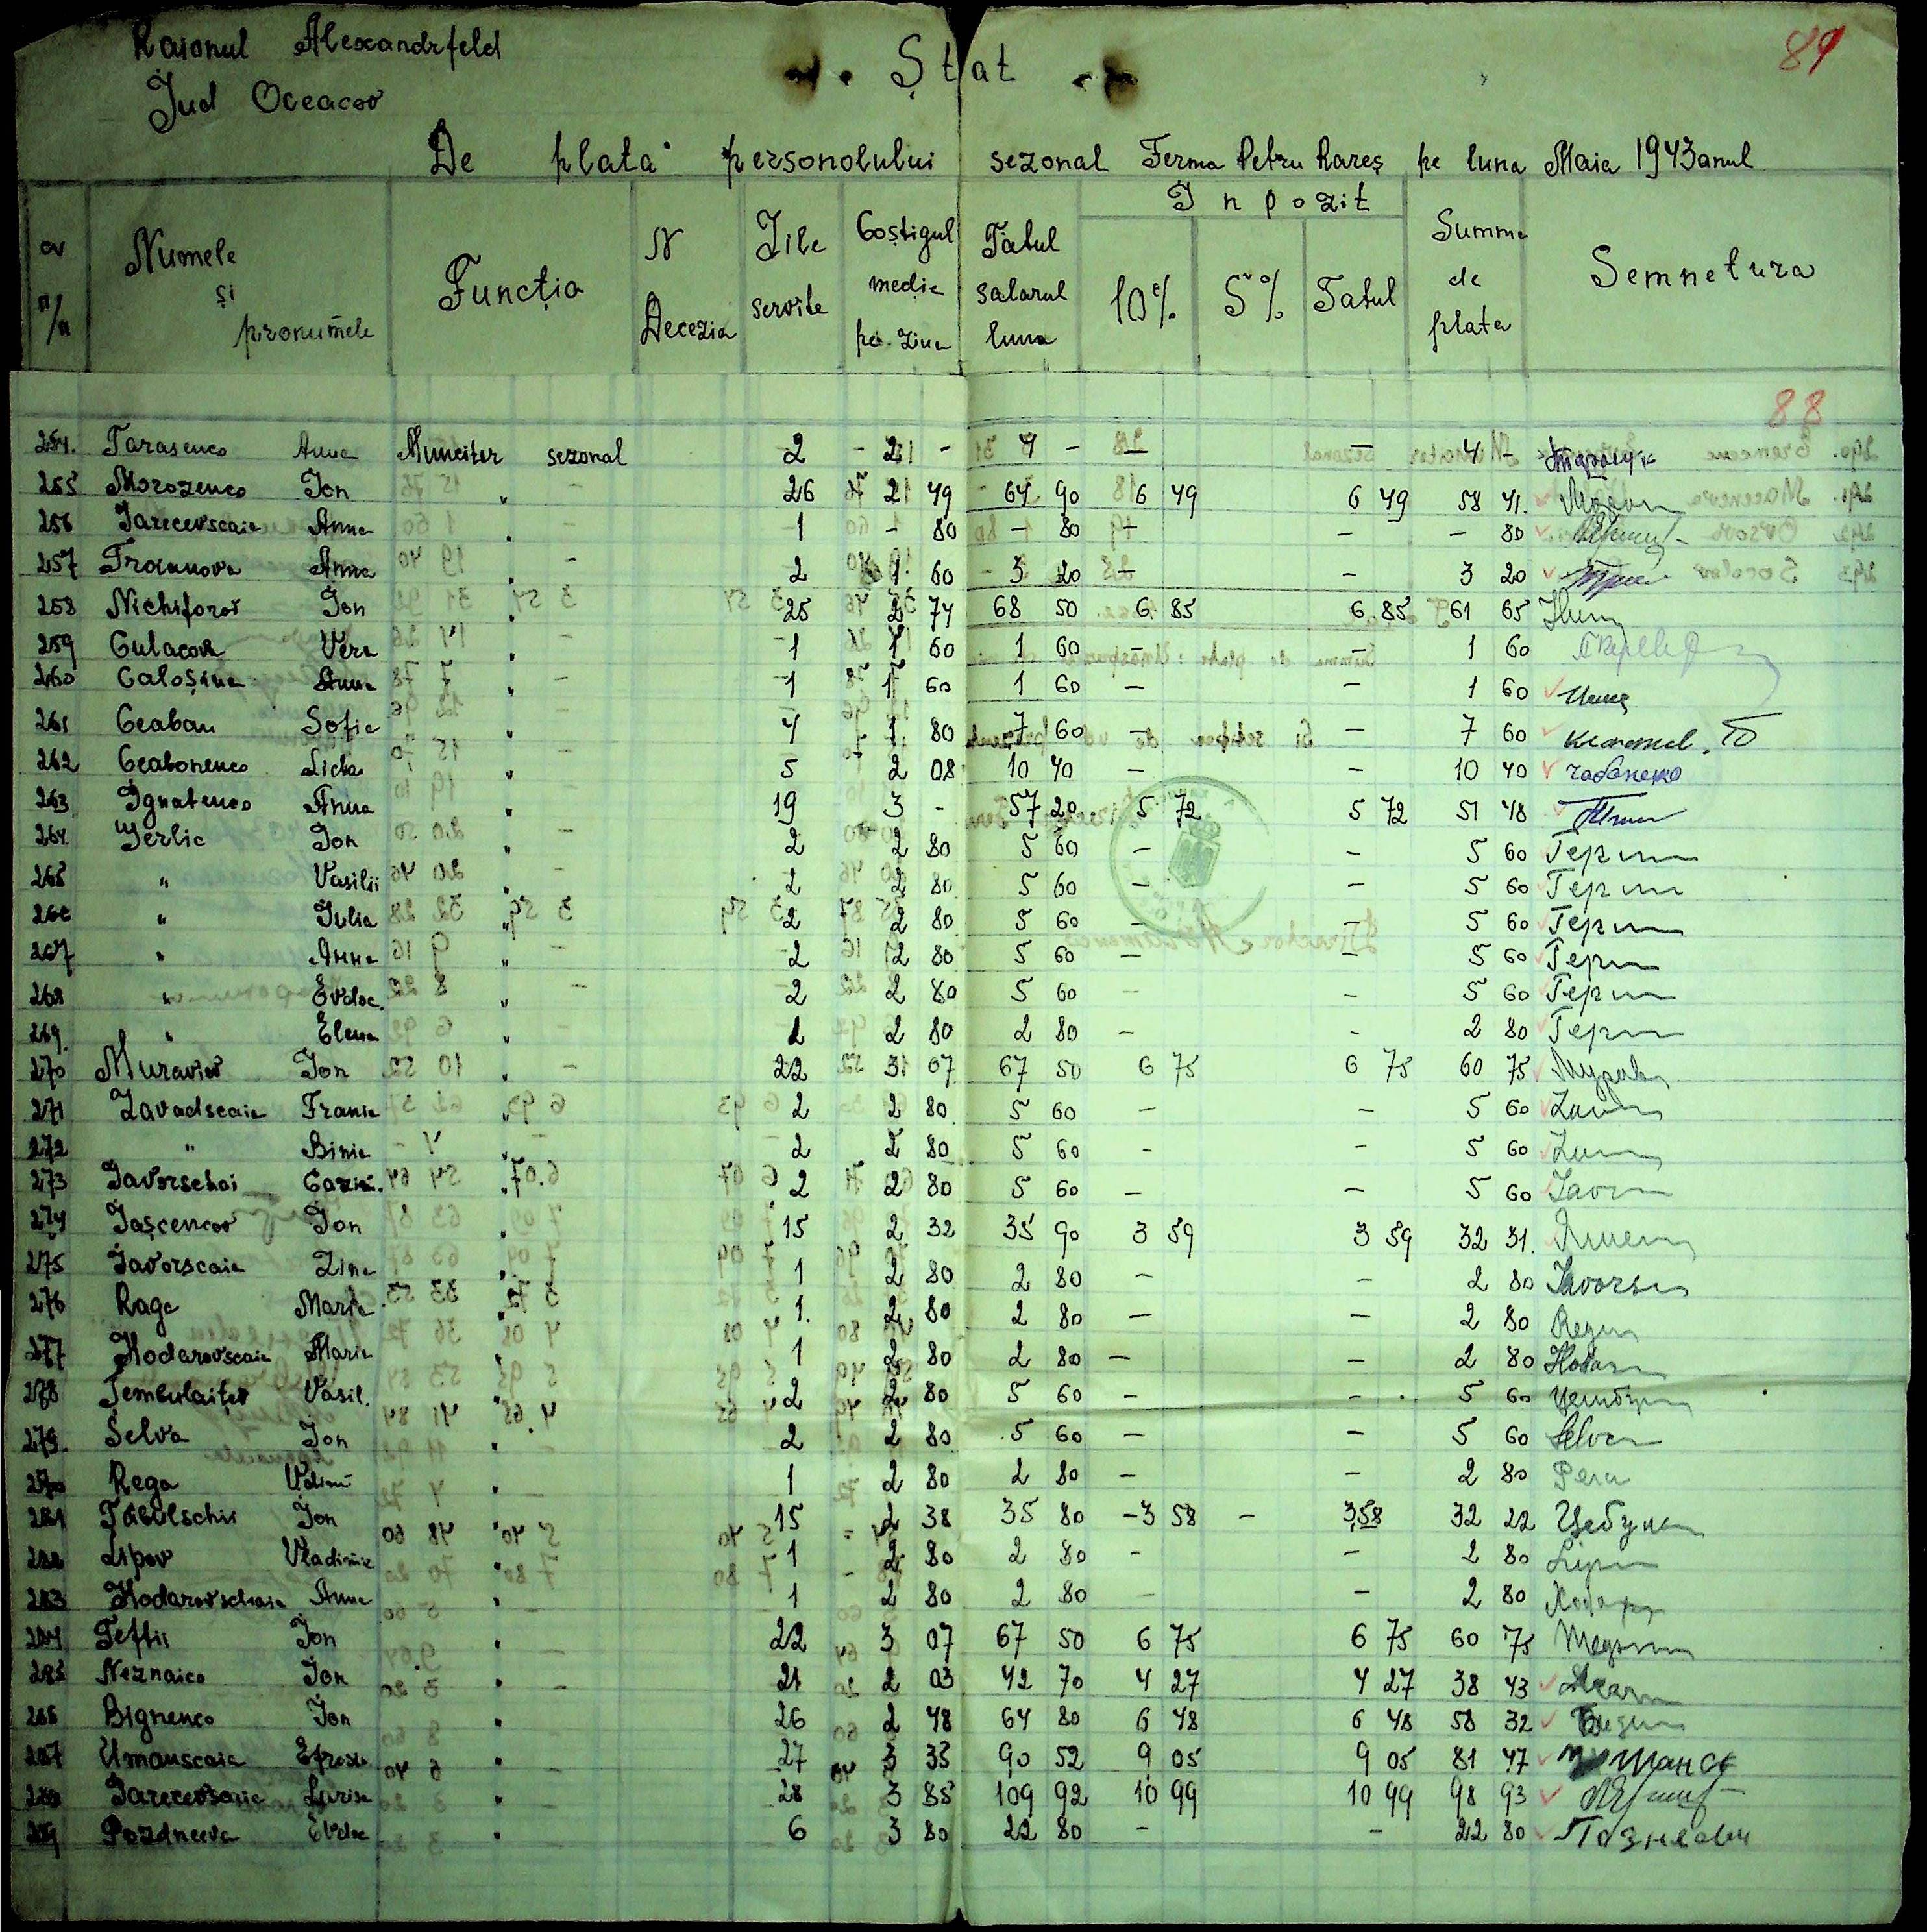 Raionul Alexandrfeld
Jud Oceacov
89
Ștat
De plata personolului sezonal Ferma Petru Rareș pe luna Maia 1943 anul
Numele și pronumele Funcția N Decezia Zile servite Coștigul medie pe zina Tatul salarul luna Inpozit 10% 5% Tatul Summa de plata Semnetura
88
254. Tarasenco Anna Munciter sezonal 2 - 2 - 4 - - - 4 -
255 Morozenco Jon " 26 2 49 64 90 6 49 6 49 58 41.
256 Jarecevscaia Anna " 1 - 80 - 80 - - - 80
257 Troianova Anna " 2 1 60 3 20 - - 3 20
258 Nichiforov Jon " 25 2 74 68 50 6 85 6 85 61 65
259 Culacova Vera " 1 1 60 1 60 - - 1 60
260 Caloșina Anna " 1 1 60 1 60 - - 1 60
261 Ceaban Sofia " 4 1 80 7 60 - - 7 60
262 Ceabonenco Lida " 5 2 08 10 40 - - 10 40 Чабоненко
263 Ignatenco Anna " 19 3 - 57 20 5 72 5 72 51 48
264 Gerlic Jon " 2 2 80 5 60 - - 5 60 Герли
265 " Vasilii " 2 2 80 5 60 - - 5 60 Герли
266 " Iulia " 2 2 80 5 60 - - 5 60 Герли
267 " Anna " 2 2 80 5 60 - - 5 60 Герли
268 " Evdoc. " 2 2 80 5 60 - - 5 60 Герли
269. " Elena " 1 2 80 2 80 - - 2 80 Герли
270 Muraviov Jon " 22 3 07 67 50 6 75 6 75 60 75
271 Zavadscaia Frania " 2 2 80 5 60 - - 5 60
272 " Binia " 2 2 80 5 60 - - 5 60
273 Javorschai Cazim. " 2 2 80 5 60 - - 5 60
274 Jașcencov Jon " 15 2 32 35 90 3 59 3 59 32 31.
275 Javorscaia Zina " 1 2 80 2 80 - - 2 80
276 Raga Maria " 1. 2 80 2 80 - - 2 80
277 Hodarovscaia Maria " 1 2 80 2 80 - - 2 80
278 Tembulaiter Vasil. " 2 2 80 5 60 - - 5 60
279. Selva Jon " 2 2 80 5 60 - - 5 60 Selva
280 Rega Vdimi " 1 2 80 2 80 - - 2 80
281 Tabulschii Jon " 15 2 38 35 80 - 3 58 - 3 58 32 22
282 Lipov Vladimir " 1 2 80 2 80 - - 2 80
283 Hodarovschaia Anna " 1 2 80 2 80 - - 2 80
284 Teftii Jon " 22 3 07 67 50 6 75 6 75 60 75
285 Neznaico Jon " 21 2 03 42 70 4 27 4 27 38 43
286 Bignenco Jon " 26 2 48 64 80 6 48 6 48 58 32
287 Umanscaia Efrosi. " 27 3 35 90 52 9 05 9 05 81 47
288 Jarecevscaia Larisa " 28 3 85 109 92 10 99 10 99 98 93
289 Pozdneeva Evdoc " 6 3 80 22 80 - - 22 80